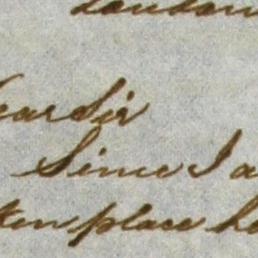 London
ear Sir
Since I a
ken place he